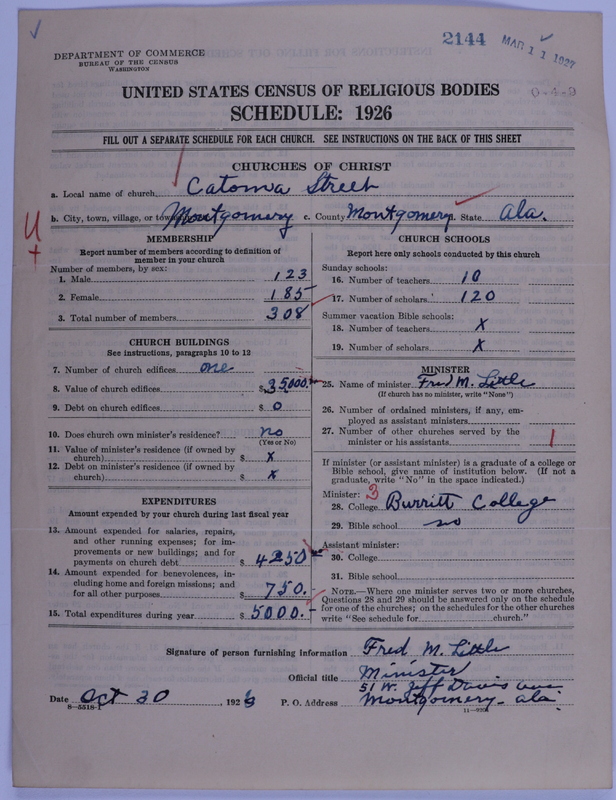 2144 MAR 11 1927
DEPARTMENT OF COMMERCE
BUREAU OF THE CENSUS
WASHINGTON
UNITED STATES CENSUS OF RELIGIOUS BODIES
0-4-9
SCHEDULE: 1926
FILL OUT A SEPARATE SCHEDULE FOR EACH CHURCH. SEE INSTRUCTIONS ON THE BACK OF THIS SHEET
CHURCHES OF CHRIST
a. Local name of church Catoma Street
b. City, town, village, or Montgomery c. County Montgomery d. State Ala.
MEMBERSHIP
Report number of members according to definition of
member in your church
Number of members, by sex:
1. Male 123
2. Female 185
3. Total number of members 308
CHURCH BUILDINGS
See instructions, paragraphs 10 to 12
7. Number of church edifices one
8. Value of church edifices $ 35000.
9. Debt on church edifices $ 0
10. Does church own minister's residence? no
(Yes or No)
11. Value of minister's residence (if owned by
church) $ x
12. Debt on minister's residence (if owned by
church) $ x
EXPENDITURES
Amount expended by your church during last fiscal year
13. Amount expended for salaries, repairs,
and other running expenses; for im-
provements or new buildings; and for
payments on church debt $ 4250
14. Amount expended for benevolences, in-
cluding home and foreign missions; and
for all other purposes $ 750.
15. Total expenditures during year $ 5000.
CHURCH SCHOOLS
Report here only schools conducted by this church
Sunday schools:
16. Number of teachers 10
17. Number of scholars 120
Summer vacation Bible schools:
18. Number of teachers x
19. Number of scholars x
MINISTER
25. Name of minister Fred M. Little
(If church has no minister, write "None")
26. Number of ordained ministers, if any, em-
ployed as assistant ministers
27. Number of other churches served by the
minister or his assistants 1
If minister (or assistant minister) is a graduate of a college or
Bible school, give name of institution below. (If not a
graduate, write "No" in the space indicated.)
Minister: 3
28. College Burritt College
29. Bible school no
Assistant minister:
30. College
31. Bible school
NOTE.—Where one minister serves two or more churches,
Questions 28 and 29 should be answered only on the schedule
for one of the churches; on the schedules for the other churches
write "See schedule for church."
Signature of person furnishing information Fred M. Little
Official title Minister
51 W. Jeff Davis ave
Date Oct 30 1926 P. O. Address Montgomery - ala.
8-5518-1